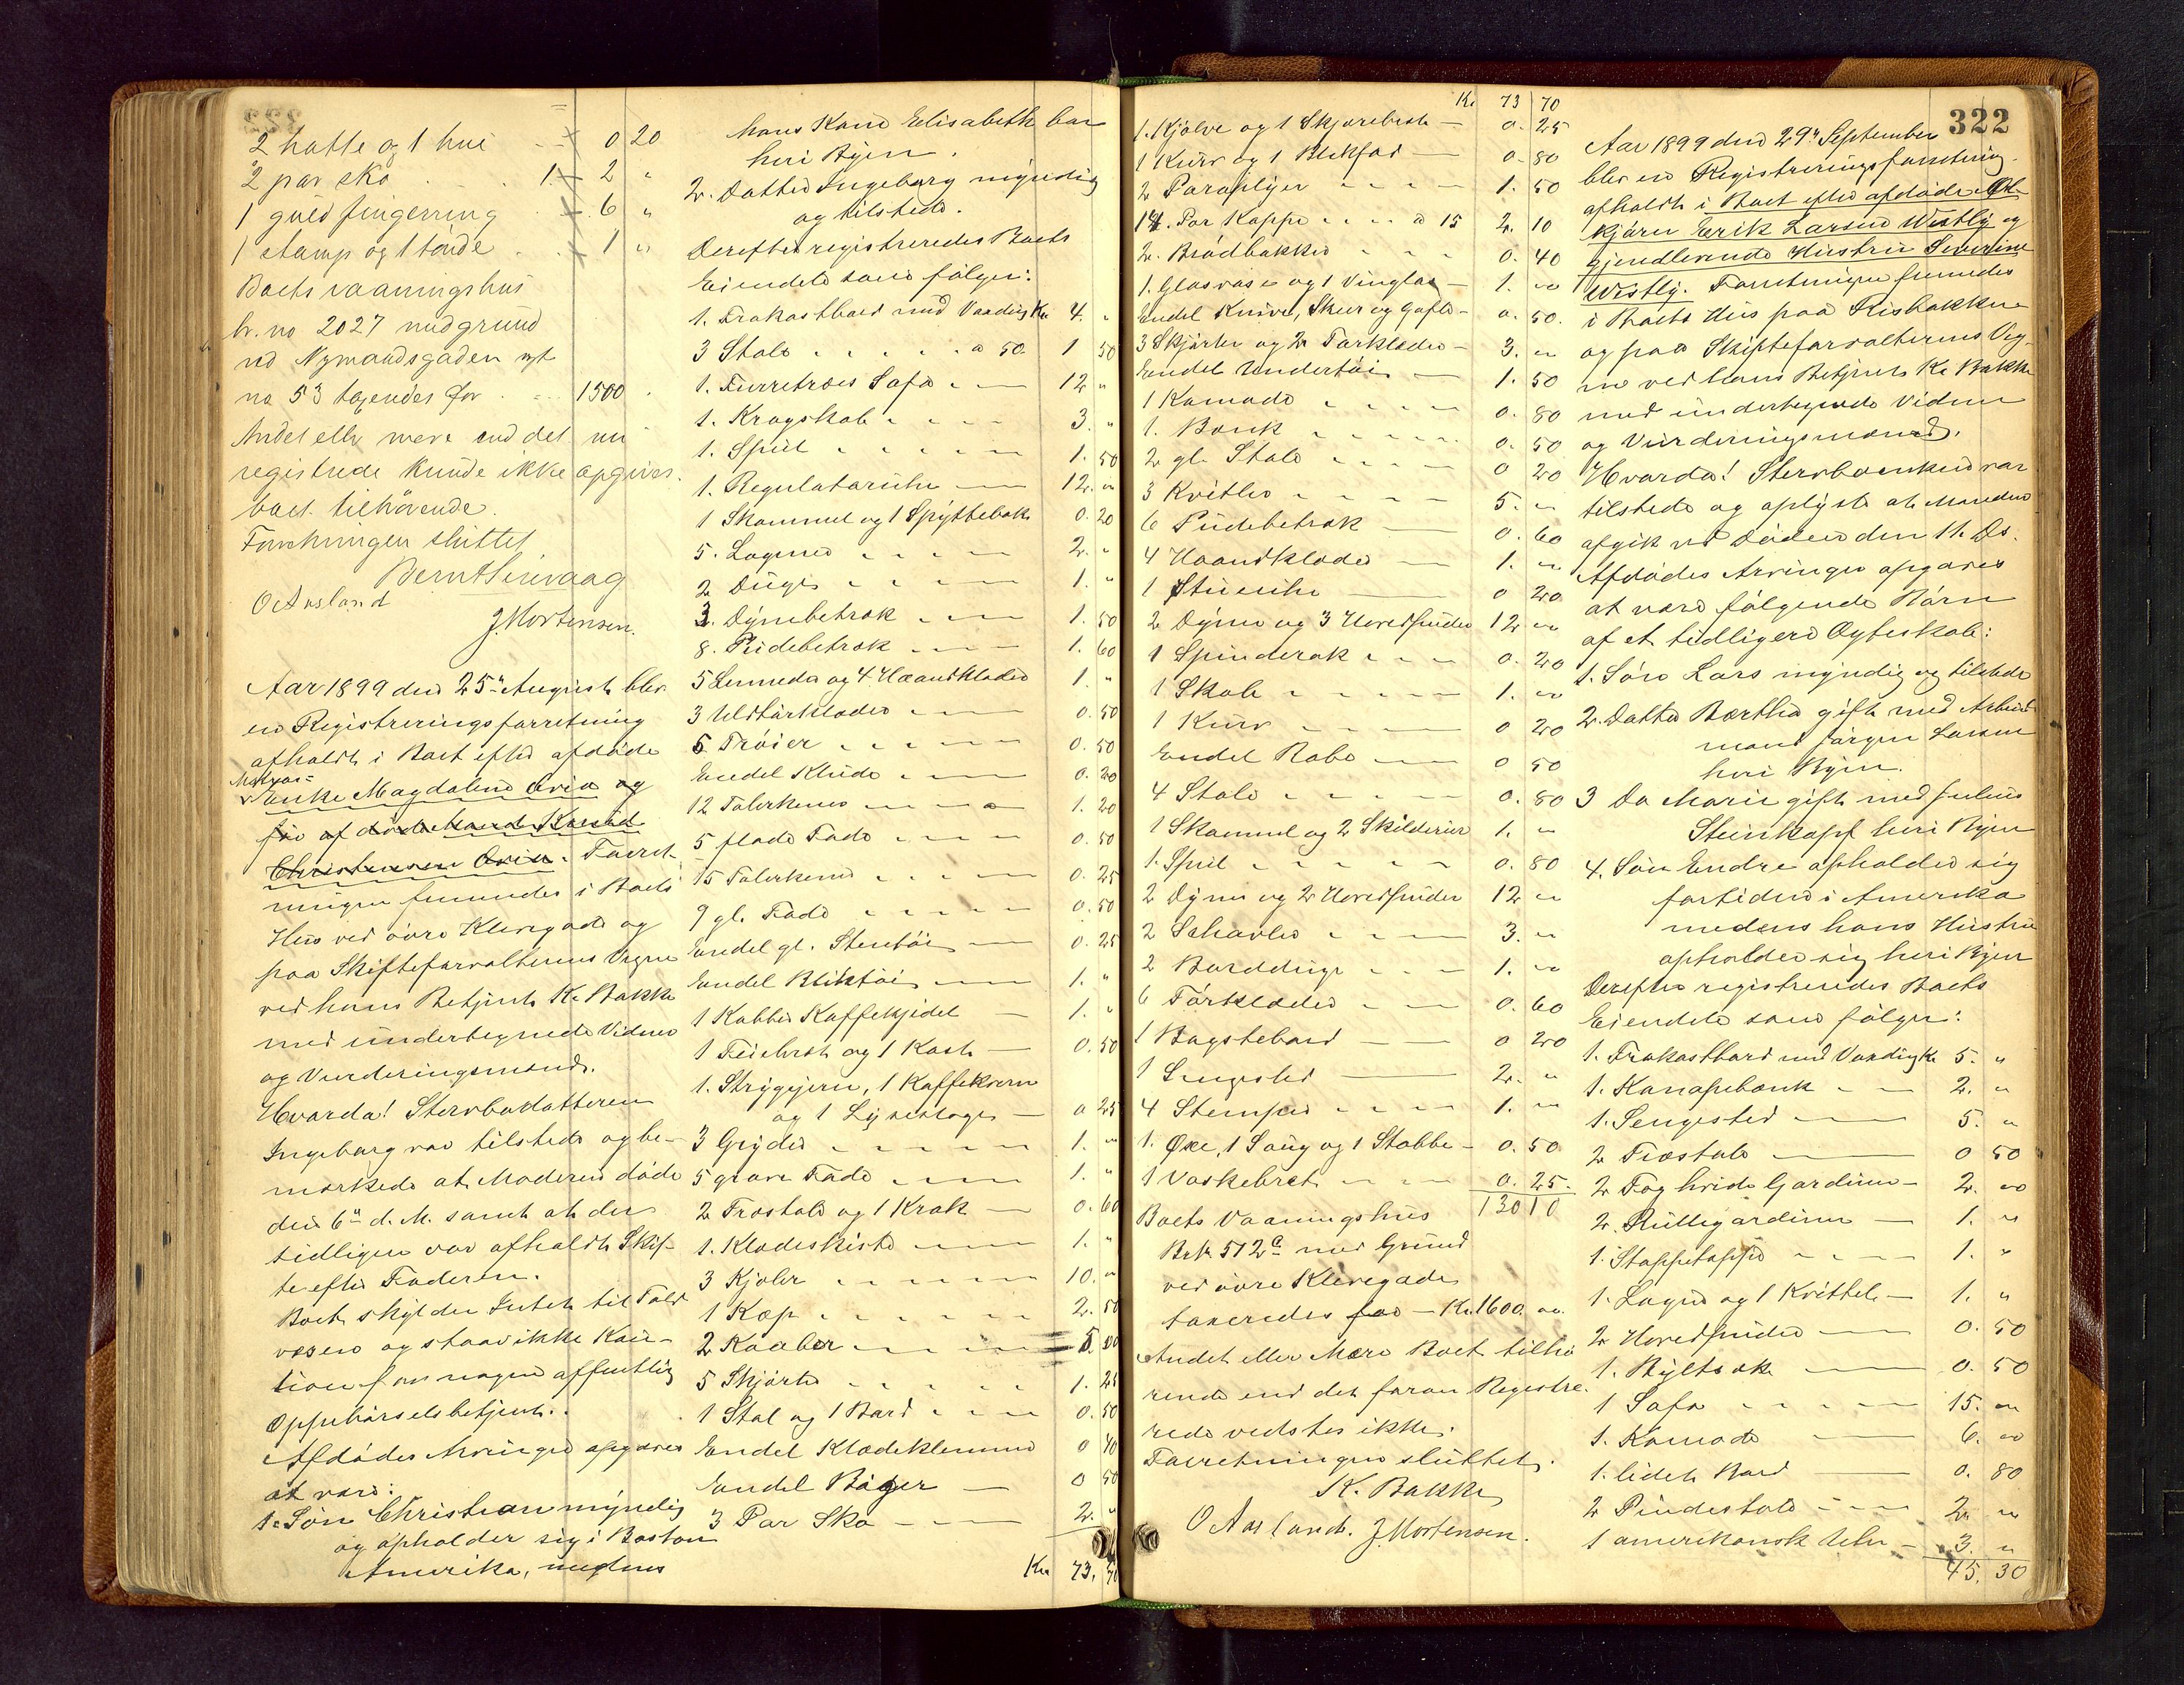 2 hatte og 1 hue 0 20
2 par sko 1 2 "
1 guld fingerring 6 "
1 stamp og 1 tönde 1 "
Boets vaaningshus
br. no 2027 med grund
ved Nymandsgaden nyt
no 53 taxeredes for 1500 .
Andet eller mere end det nu
registrede kunde ikke opgives
boet tilhörende.
Forretningen sluttet.
O Aasland
J. Mortensen.
Aar 1899 den 25" August blev
en Registreringsforretning
afholdt i Boet efter afdöde
Enke Magdalene
för afdöde Mand
Christensen . Forret-
ningen fremmedes i Boets
Hus ved övre Klevegade og
paa Skifteforvalterens Vegne
ved hans Betjent K. Bakke
med undertegnede Vidner
og Vurderingsmænd.
Hvorda! Stervbodatteren
Ingeborg var tilstede og be-
mærkede at Moderen döde
den 6" d. M. samt at der
tidligere var afholdt Skif-
te efter Faderen.
Boet skylder Intet til Told
væsen og staar ikke Kau-
tion for nogen offentlig
Oppebörselsbetjent.
Afdödes Arvinger opgaves
at være:
1. Sön Christian myndig
og opholder sig i Boston
Amerika, medens
hans Kone Elisabeth bor
heri Byen.
2. Datter Ingeborg myndig
og tilstede.
Derefter registreredes Boets
Eiendele som fölger:
1. Frokostbord med Voxdug Kr 4. "
3 Stole a 50 1 50
1. Furretræes Sofa 12 "
1. Kragskab 3. "
1. Speil 1. 50
1. Regulatoruhr 12. "
1 Skammel og 1 Spyttebak 0. 20
5. Lagener 2. "
2 Duge 1. "
3. Dynebetræk 1. 50
8. Pudebetræk 1. 60
5 Lenneda og 4 Haandklæder 1. "
3 Uldtörklæder 0. 50
5 Tröier 0. 50
Endel Klude 0. 20
12 Talerkener 1. 20
5 flade Fade 0. 50
15 Talerkener 0. 25
9 gl. Fade 0. 50
Endel gl. Stentöi 0. 25
Endel Bliktöi 1. "
1 Kobber Kaffekjedel 1. "
1 Feiebret og 1 Kost 0. 50
1. Strygejern, 1 Kaffekværn
og 1 Lysestage 0 25
3 Gryder 1. "
5 grove Fade 1. "
2 Træstole og 1 Krak 0. 60
1. Klædeskiste 1. "
3 Kjoler 10. "
1 Kop 2. 50
2 Kaaber 5. 00
5 Skjörter 1. 25
1 Stol og 1 Bord 0. 50
Endel Klædeklemmer 0 40
Endel Böger 0 50
3 Par Sko 2. "
Kr 73. 70
322
Kr 73 70
1. Kjolve og 1 Skjærebret 0. 25
1 Kurv og 1 Blikfad 0. 80
2 Paraplyer 1. 50
14. Par Koppe a 15 2. 10
2. Brödbakker 0. 40
1. Glasvase og 1 Vinglas 1. "
Endel Knive, Skeer og Gafler 0. 50.
3 Skjörter og 2 Törklæder 3. "
Endel Undertöi 1. 50
1 Komode 0. 80
1. Bænk 0. 50
2 gl. Stole 0 20
3 Kvitler 5. "
6 Pudebetræk 0. 60
4 Haandklæder 1. "
1 Stueuhr 0 20
2 Dyner og 3 Hovedpuder 12 "
1 Spinderok 0. 20
1 Skab 1. "
1 Kurv 0 20
Endel Rabo 0 50
4 Stole 0. 80
1 Skammel og 2 Skilderier 1. "
1. Speil 0. 80
2 Dyner og 2 Hovedpuder 12 "
2 Schavler 3. "
2 Bordduge 1. "
6 Törklæder 0. 60
1 Bagstebord 0 20
1 Sengested 2. "
4 Stemper 1. "
1. Öxe, 1 Saug og 1 Stabbe 0. 50
1 Vaskebret 0. 25.
130 10
Boets Vaaningshus
Brt. 512a med Grund
ved övre Klevegade
taxeredes for - Kr. 1600. oo.
Andet eller Mere Boet tilhö
rende end det foran Registre-
rede vedstes ikke.
Forretningen sluttet.
K. Bakke
O Aasland. J. Mortensen.
Aar 1899 den 29" September
blev en Registreringsforretning
afholdt i Boet efter afdöde Öl-
kjörer Eerik Larsen Westly og
gjenlevende Hustru Severine
Westly. Forretningen fremmedes
i Boets Hus paa Risbakken
og paa Skifteforvalterens Veg-
ne ved hans Betjent K. Bakke
med undertegnede Vidner
og Vurderingsmænd.
Hvorda! Stervboenken var
tilstede og oplyste at Manden
afgik ved Döden den 11. Ds.
Afdödes Arvinger opgaves
at være fölgende Börn
af et tidligere Ægteskab:
1. Sön Lars myndig og tilstede
2. Datter Bertha gift med Arbeids
mand Jörgen Larsen
heri Byen.
3 Do Marie gift med Julius
Steinkopf heri Byen
4. Sön Endre opholder sig
fortiden i Amerika
medens hans Hustru
opholder sig heri Byen
Derefter registreredes Boets
Eiendele som fölger:
1. Frokostbord med Voxdug Kr 5. "
1. Kanapebænk 2. "
1. Sengested 5. "
2 Træstole 0 50
2 Fag hvide Gardiner 2. "
2. Rullegardiner 1. "
1. Stoppetæppe 1. "
1. Lagen og 1 Kvittel 1. "
2 Hovedpuder 0. 50
1. Byltsæk 0. 50
1 Sofa 15. "
1. Komode 6. "
1. lidet Bord 0. 80
2 Pindestole 2. "
1 amerikansk Uhr 3. "
45. 30